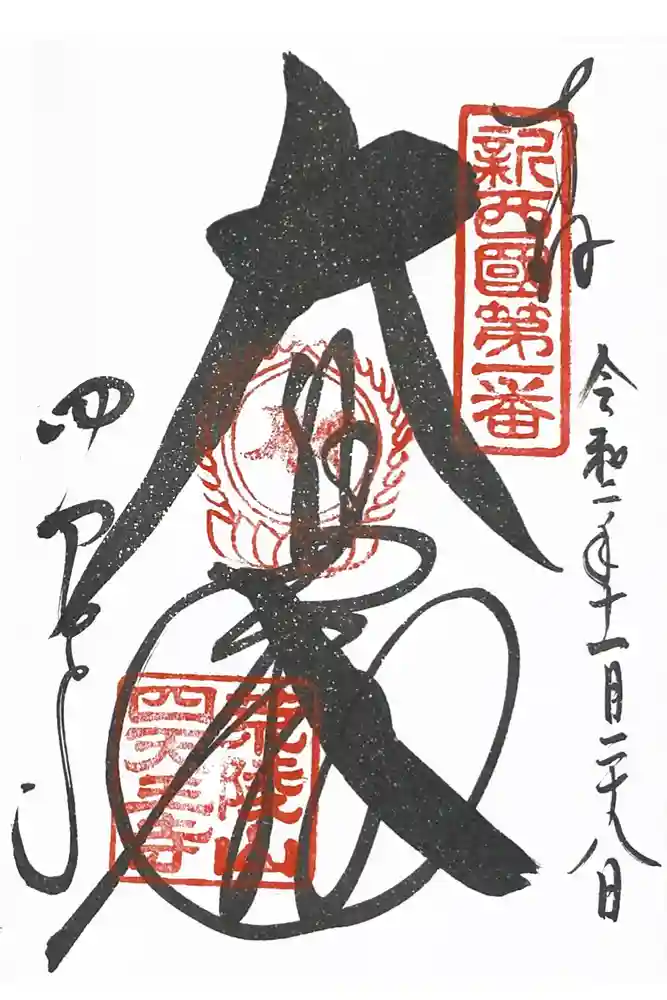 奉拝
新西國第一番
令和二年十一月二十八日
大
四天王寺
荒陵山
四天王寺